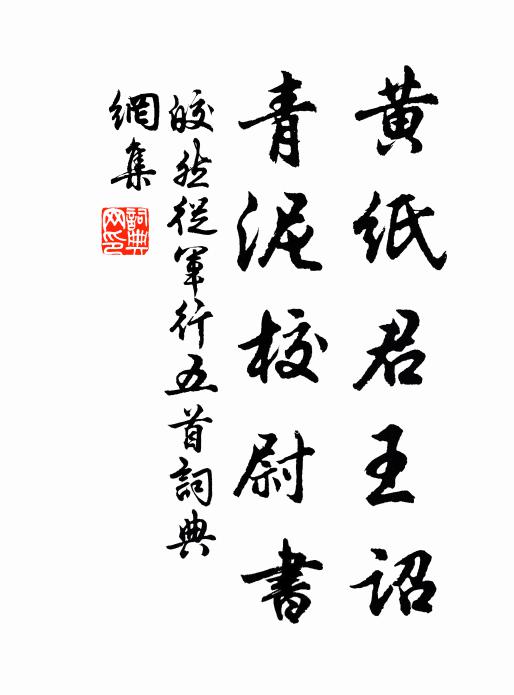 黄紙君王詔
青泥校尉書
皎然從軍行五首詞典
網集
詞典
网印